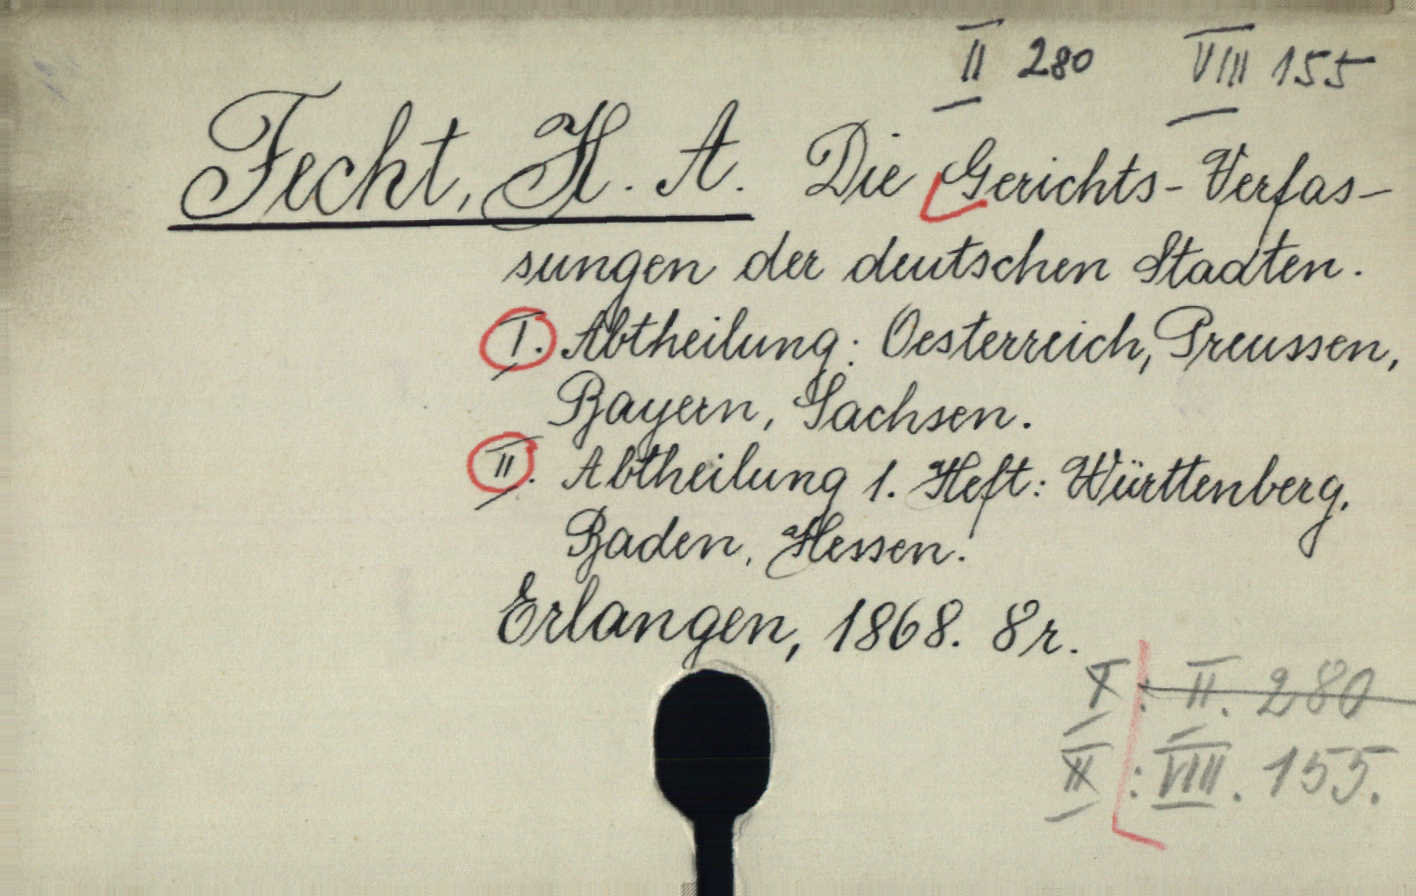 II 280 VIII 155
Fecht, H. A. Die Gerichts-Verfas-
sungen der deutschen Staaten.
I. Abtheilung: Oesterreich, Preussen,
Bayern, Sachsen.
II. Abtheilung 1. Heft: Württenberg.
Baden, Hessen.
Erlangen, 1868. 8r.
I: II. 280
II: VIII. 155.